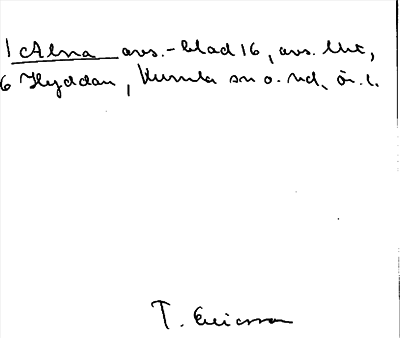 1 Alna avs.-blad 16, avs. litt,
6 Hyddan, Kumla sn o. hd, ör. l.
T. Ericsson